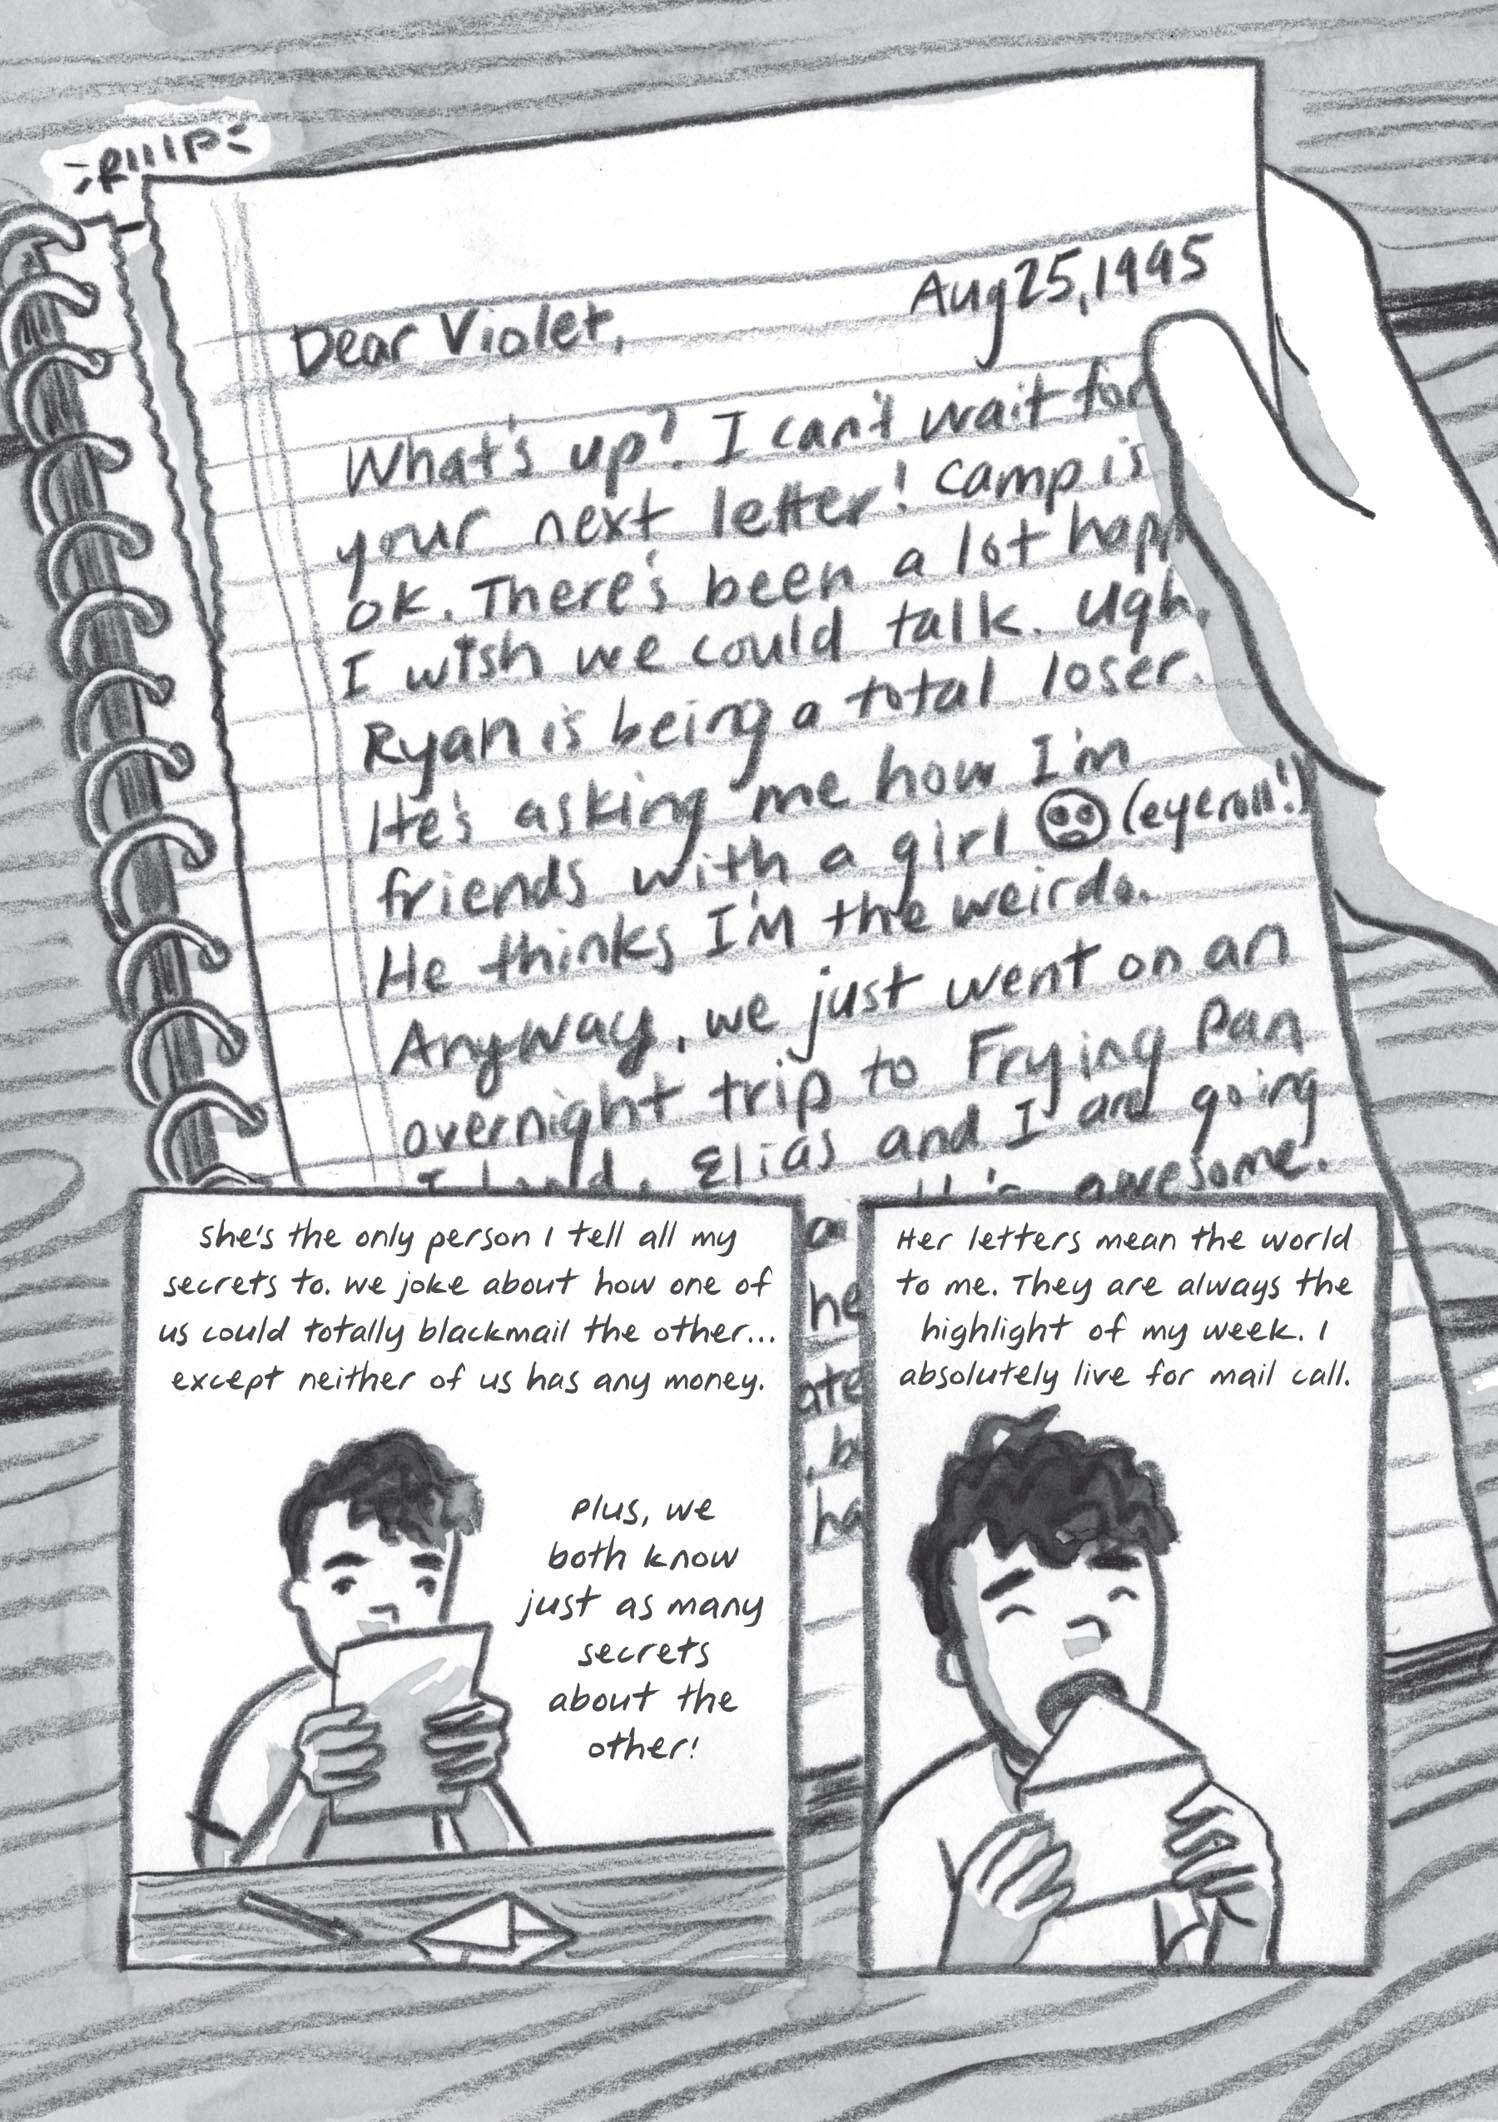 RIIIP
Aug 25, 1995
Dear Violet,
What's up? I can't wait for
your next letter! Camp is
ok. There's been a lot happ
I wish we could talk. Ugh,
Ryan is being a total loser.
He's asking me how I'm
friends with a girl (eyeroll!)
He thinks I'M the weirdo.
Anyway, we just went on an
overnight trip to Frying Pan
Island. Elias and I are going
awesome.
he
ate
ha
She's the only person I tell all my
secrets to. We joke about how one of
us could totally blackmail the other...
except neither of us has any money.
Plus, we
both know
just as many
secrets
about the
other!
Her letters mean the world
to me. They are always the
highlight of my week. I
absolutely live for mail call.